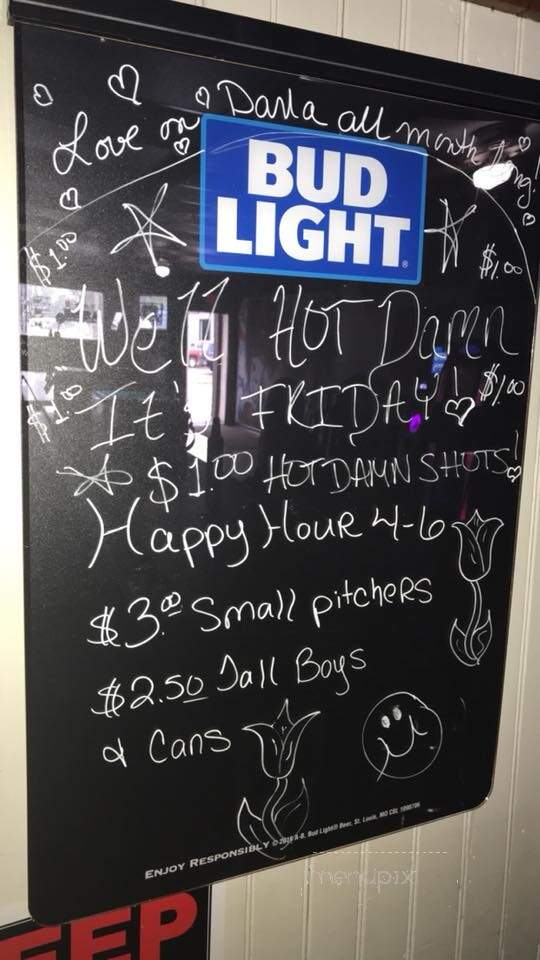 Love on Darla all month long!
BUD
LIGHT
$1.00 $1.00
We'll HOT Damn
$1.00 It's FRIDAY! $1.00
$1.00 HOT DAMN SHOTS!
Happy Hour 4-6
$3.00 Small pitchers
$2.50 Tall Boys
& Cans
ENJOY RESPONSIBLY © 2016 A-B, Bud Light® Beer, St. Louis, MO CBL 1898706
menupix
EEP